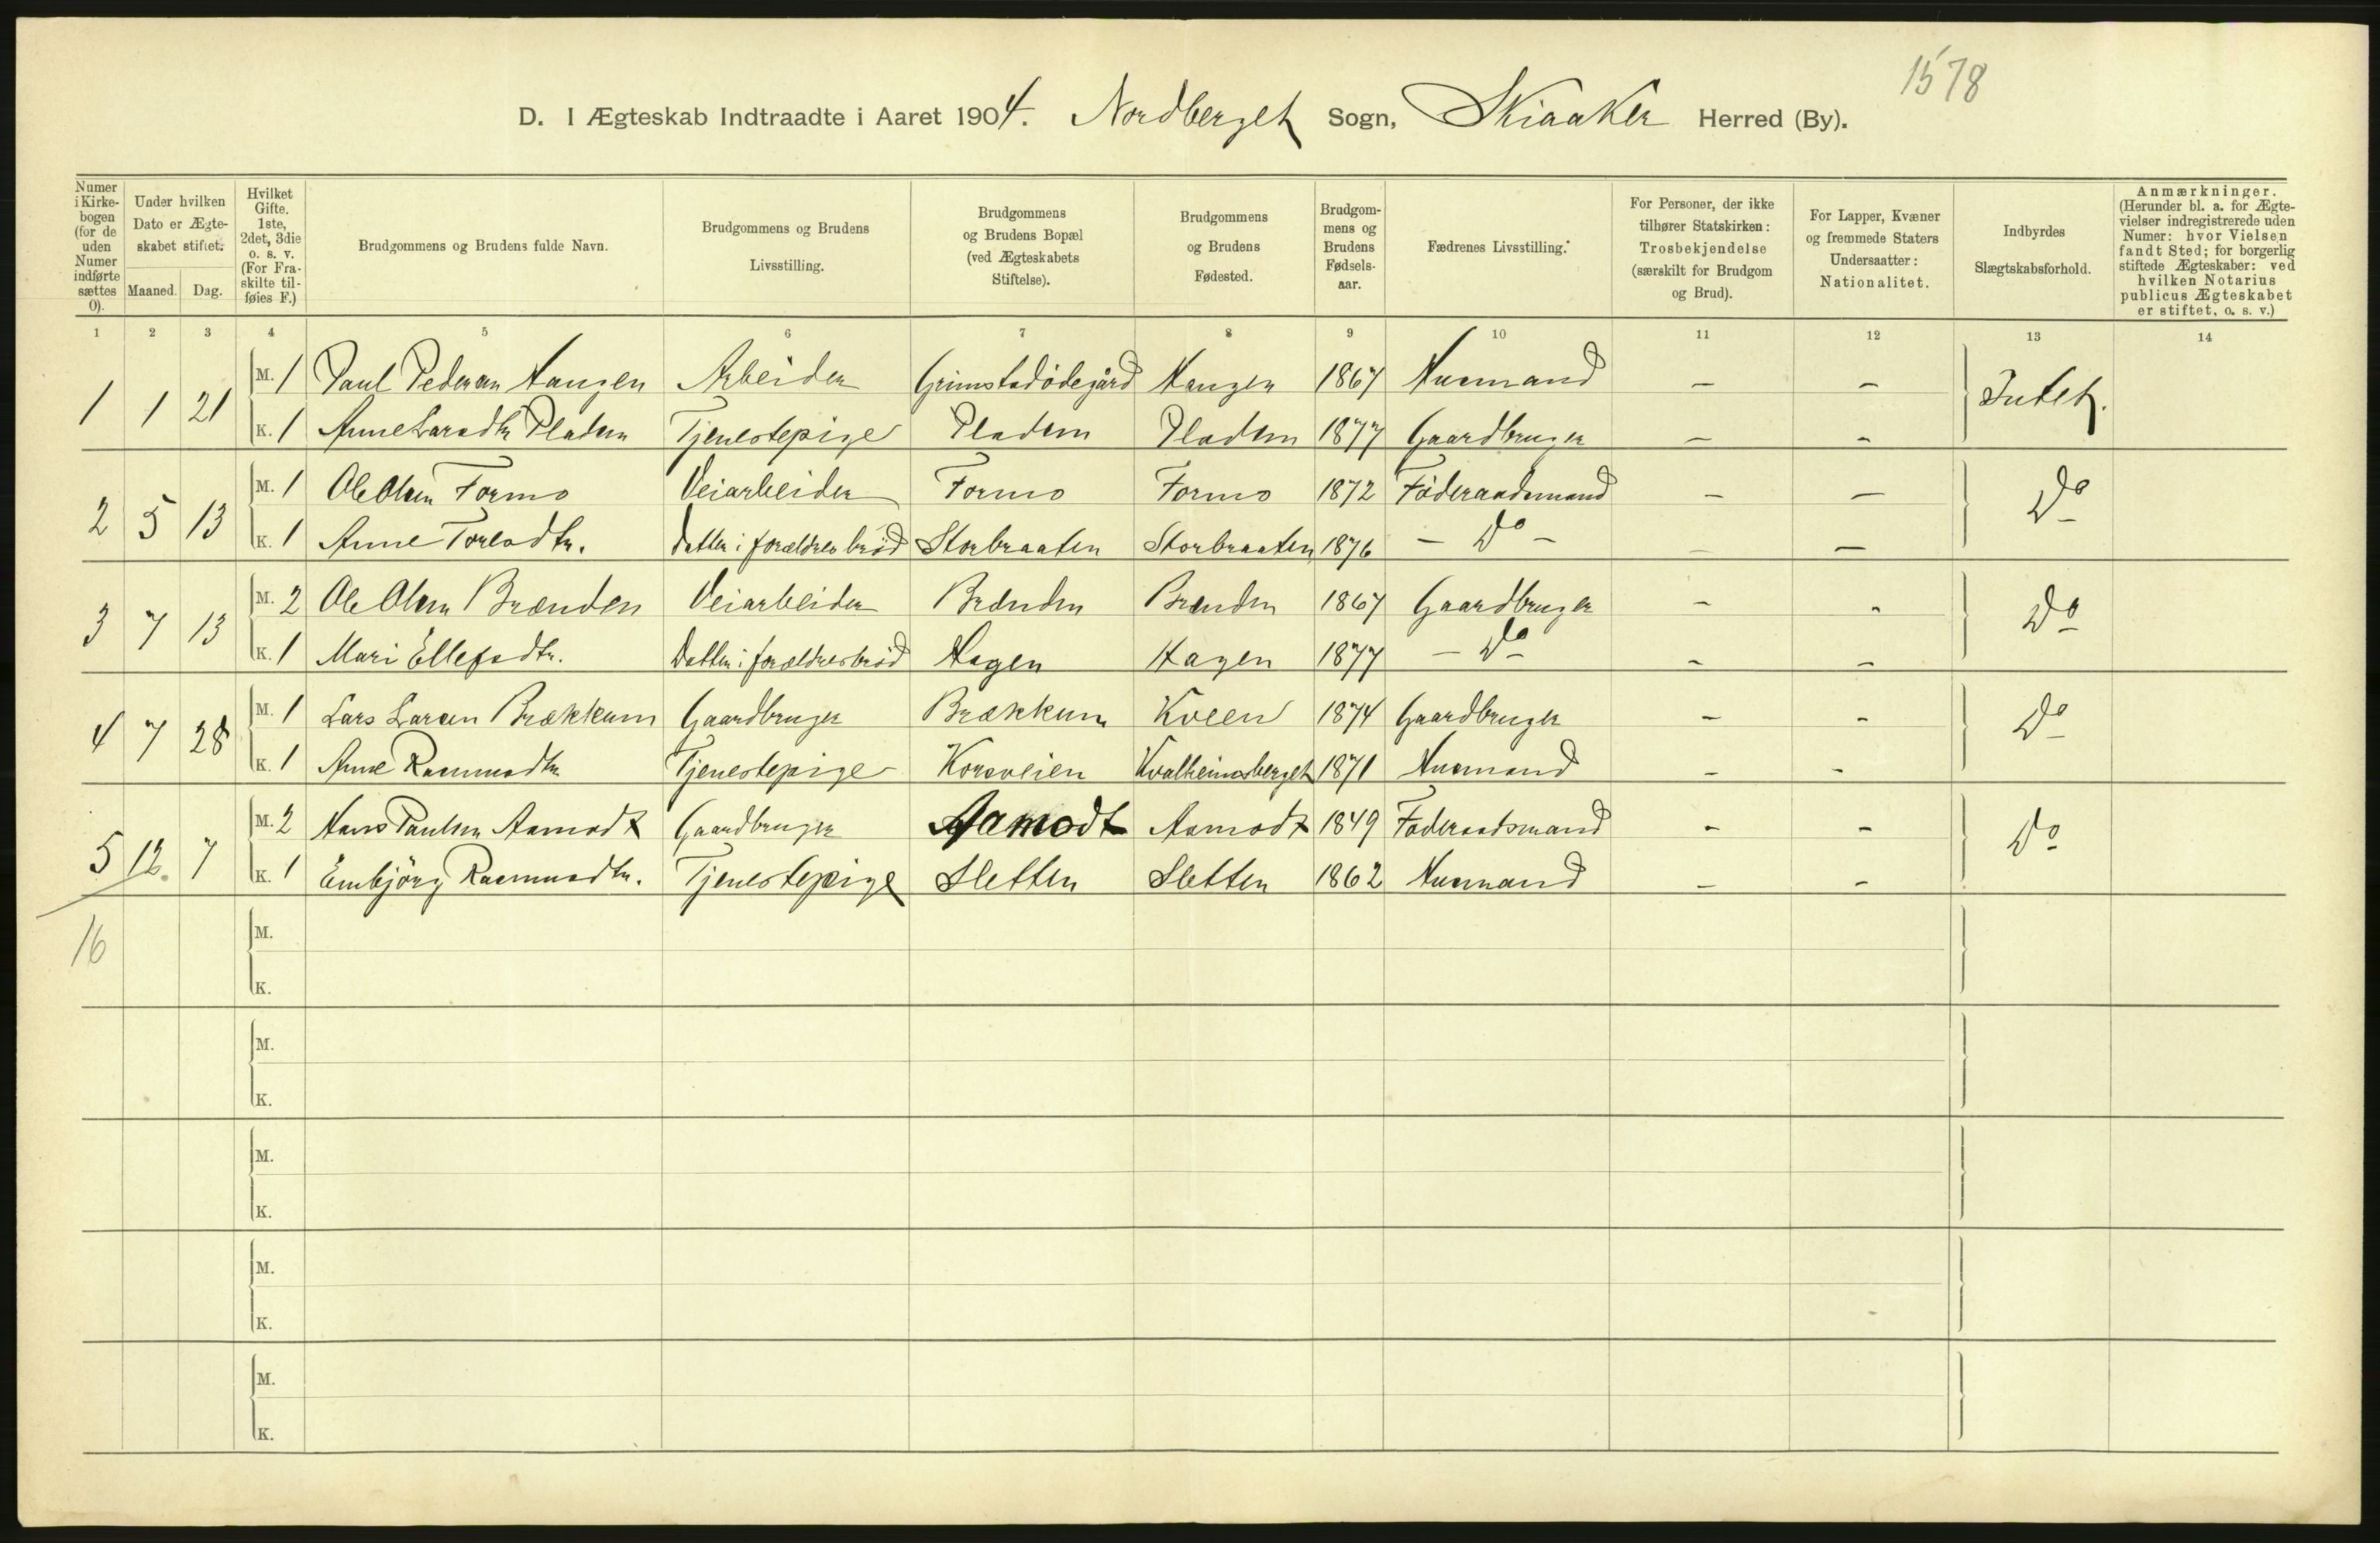 1578
D. I Ægteskab Indtraadte i Aaret 1904. Nordberget Sogn, Skiaaker Herred (By).
Numer i Kirkebogen (for de uden Numer indførte sættes 0).
Under hvilken Dato er Ægteskabet stiftet.
Maaned. Dag.
Hvilket Gifte. 1ste, 2det, 3die o. s. v. (For Fraskilte tilføies F.)
Brudgommens og Brudens fulde Navn.
Brudgommens og Brudens Livsstilling.
Brudgommens og Brudens Bopæl (ved Ægteskabets Stiftelse).
Brudgommens og Brudens Fødested.
Brudgommens og Brudens Fødselsaar.
Fædrenes Livsstilling.
For Personer, der ikke tilhører Statskirken: Trosbekjendelse (særskilt for Brudgom og Brud).
For Lapper, Kvæner og fremmede Staters Undersaatter: Nationalitet.
Indbyrdes Slægtskabsforhold.
Anmærkninger. (Herunder bl. a. for Ægtevielser indregistrerede uden Numer: hvor Vielsen fandt Sted; for borgerlig stiftede Ægteskaber: ved hvilken Notarius publicus Ægteskabet er stiftet, o. s. v.)
1 2 3 4 5 6 7 8 9 10 11 12 13 14
1 1 21 M. 1 Paul Pedersen Haugen Arbeider Grimstadödegård Haugen 1867 Husmand - - Intet.
K. 1 Anne Larsdtr Pladsen Tjenestepige Pladsen Pladsen 1877 Gaardbruger - -
2 5 13 M. 1 Ole Olsen Formo Veiarbeider Formo Formo 1872 Föderaadsmand - - Do
K. 1 Anne Toresdtr. Datter i forældres bröd Storbraaten Storbraaten 1876 - Do - - -
3 7 13 M. 2 Ole Olsen Brænden Veiarbeider Brænden Brænden 1867 Gaardbruger - - Do
K. 1 Mari Ellefsdtr. Datter i forældres bröd Hagen Hagen 1877 - Do - -
4 7 28 M. 1 Lars Larsen Brækkum Gaardbruger Brækkum Kveen 1874 Gaardbruger - - Do
K. 1 Anne Rasmusdtr Tjenestepige Korsveien Kvalheimsberget 1871 Husmand - -
5 12. 7 M. 2 Hans Paulsen Aamodt Gaardbruger Aamodt Aamodt 1849 Föderaadsmand - - Do
K. 1 Embjörg Rasmusdtr. Tjenestepige Sletten Sletten 1862 Husmand - -
16 M.
K.
M.
K.
M.
K.
M.
K.
M.
K.